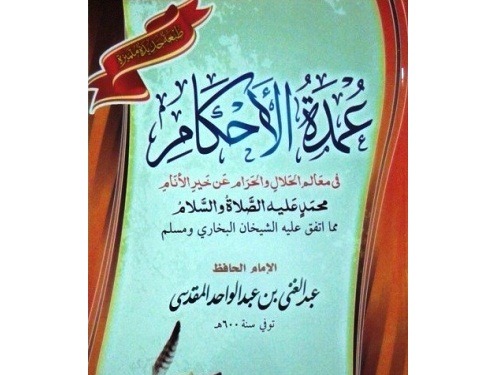 طبعة جديدة مميزة
عُمدَةُ الأَحْكَامِ
في معالم الحلال والحرام عن خير الأنام
محمدٍ عليه الصَّلاةُ والسَّلامُ
مما اتفق عليه الشيخان البخاري ومسلم
الإمام الحافظ
عبد الغني بن عبد الواحد المقدسي
توفي سنة ٦٠٠هـ